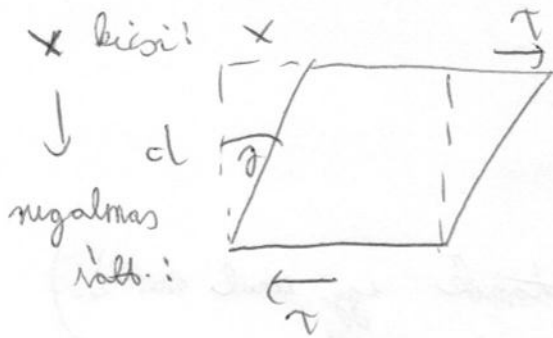 x kicsi!
x
τ
d
γ
rugalmas
vált.:
τ